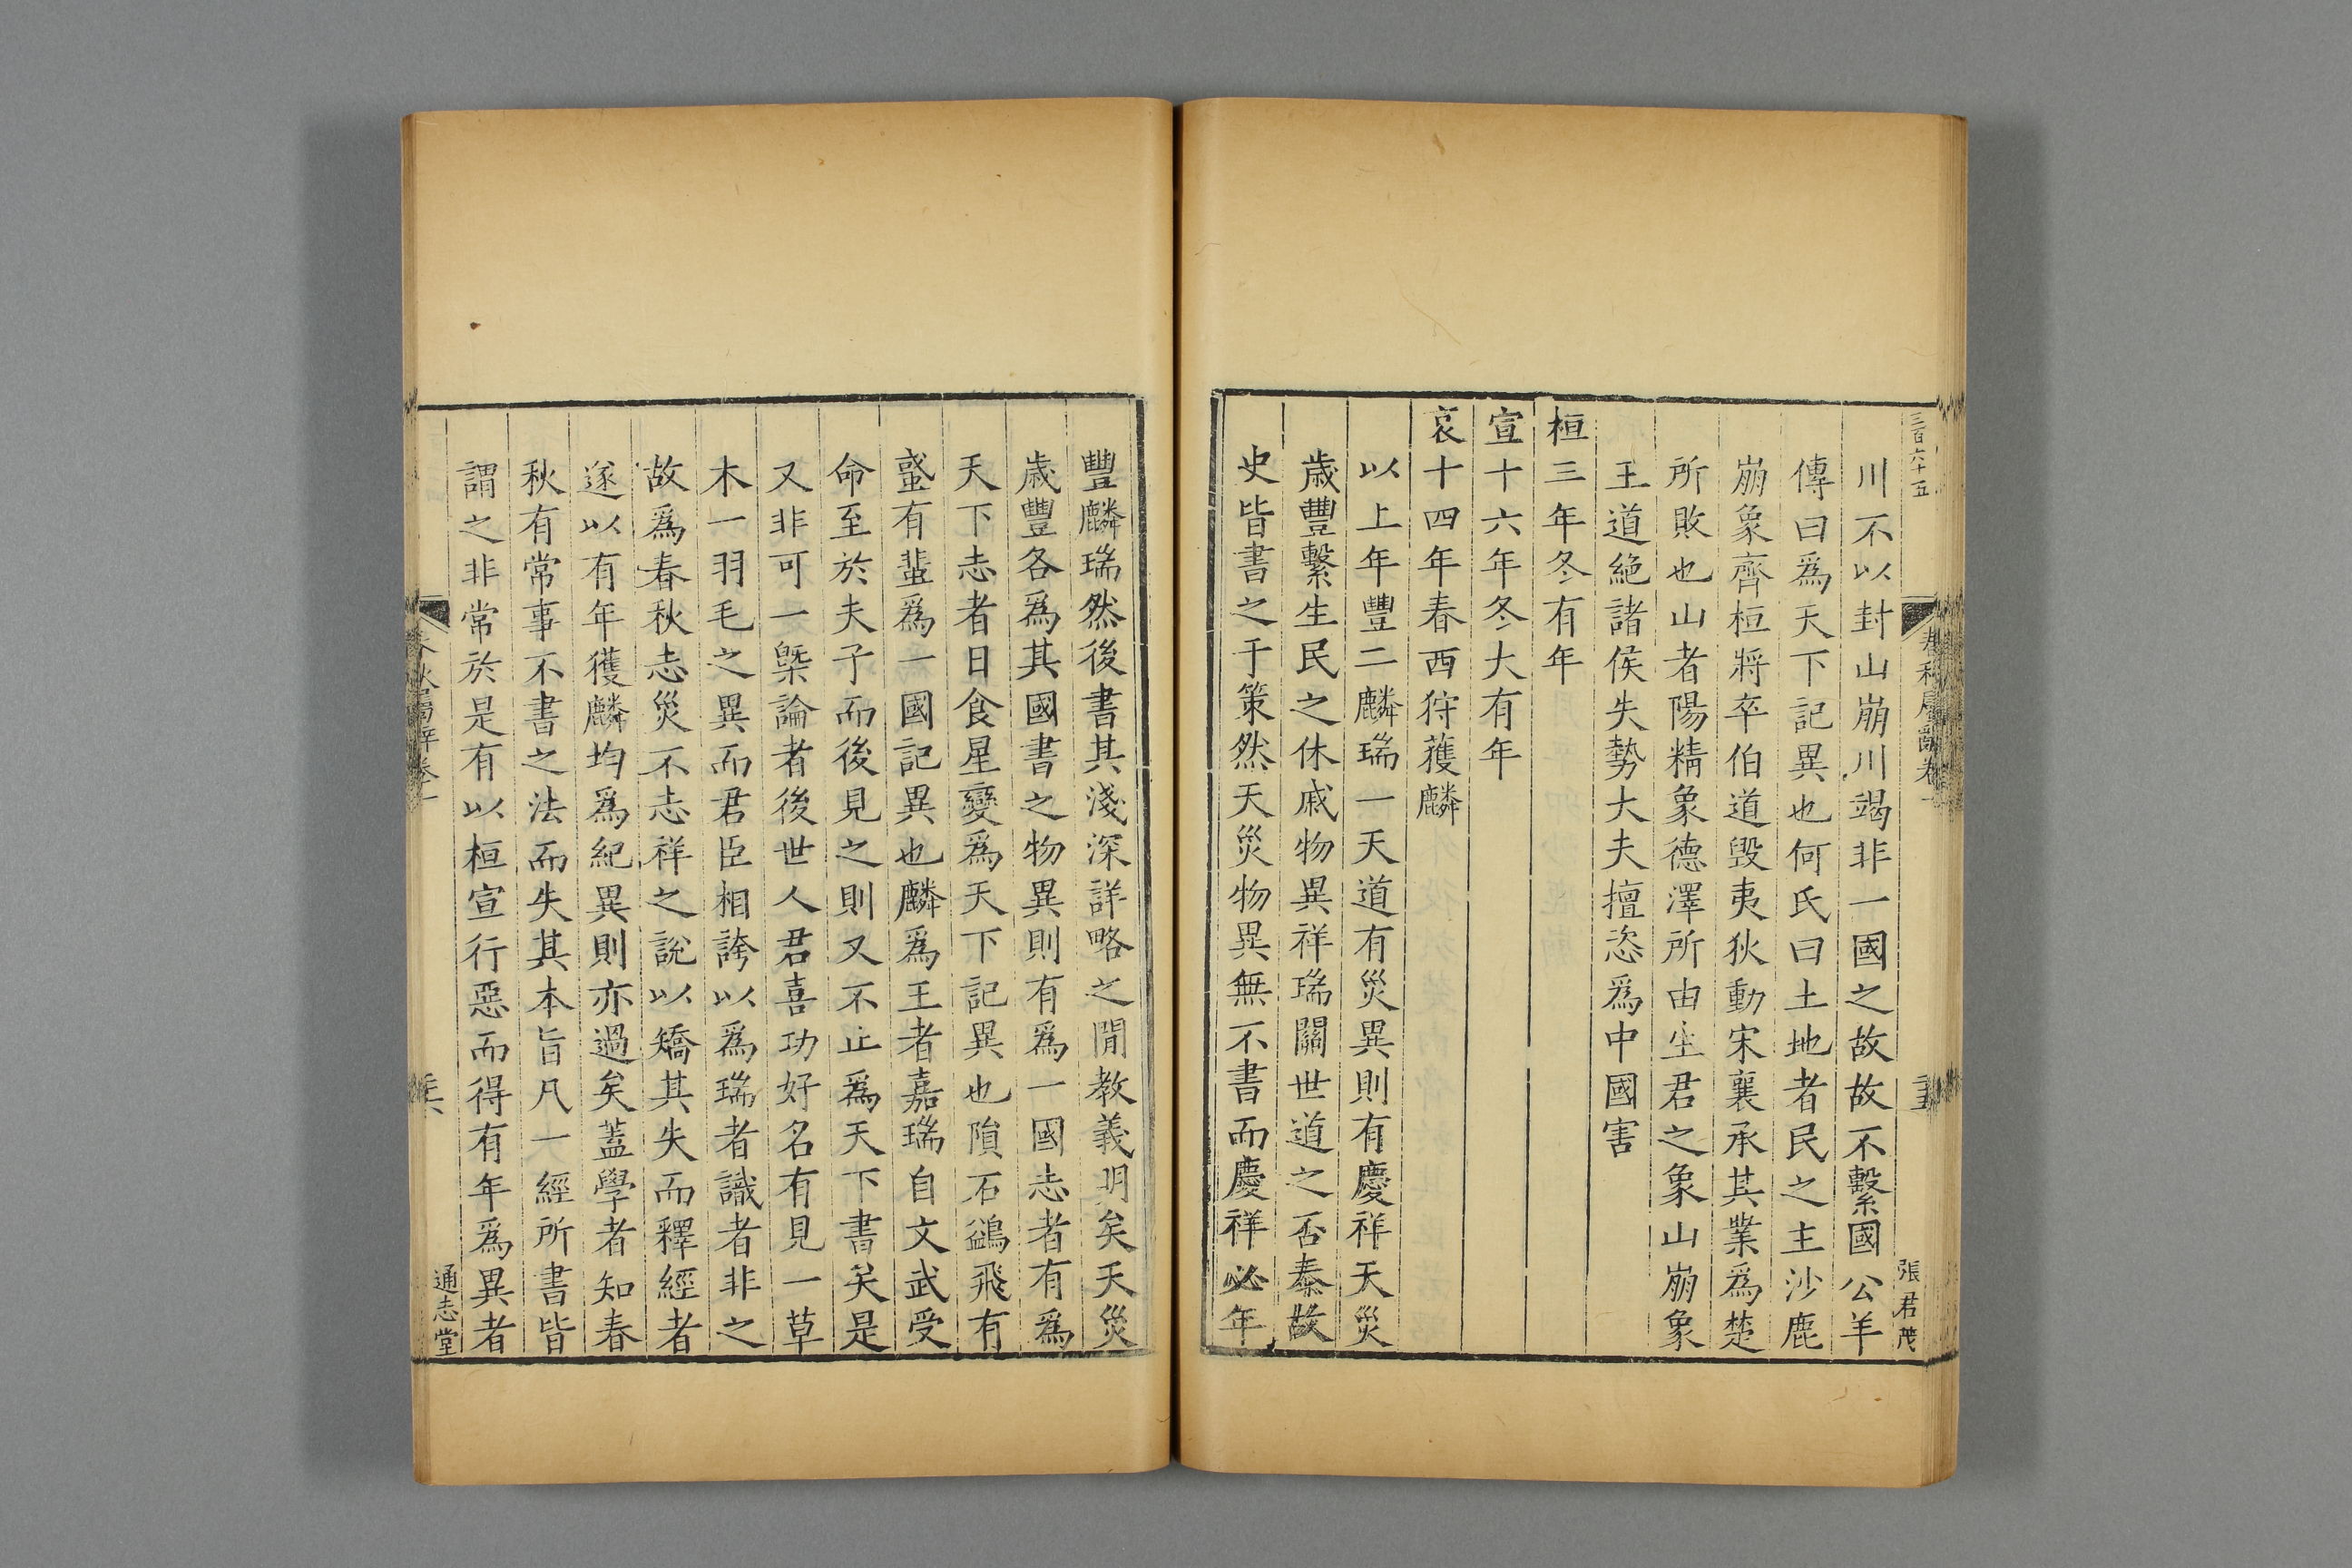 三百六十五
張君茂
川不以封山崩川竭非一國之故故不繫國公羊
傳曰爲天下記異也何氏曰土地者民之主沙鹿
崩象齊桓將卒伯道毀夷狄動宋襄承其業爲楚
所敗也山者陽精象德澤所由生君之象山崩象
王道絶諸侯失勢大夫擅恣爲中國害
桓三年冬有年
宣十六年冬大有年
哀十四年春西狩獲麟
以上年豐二麟瑞一天道有災異則有慶祥天災
歲豐繫生民之休戚物異祥瑞關世道之否泰故
史皆書之于策然天災物異無不書而慶祥必年
豐麟瑞然後書其淺深詳略之閒教義明矣天災
歲豐各爲其國書之物異則有爲一國志者有爲
天下志者日食星變爲天下記異也隕石鷁飛有
螽有蜚爲一國記異也麟爲王者嘉瑞自文武受
命至於夫子而後見之則又不止爲天下書矣是
又非可一槩論者後世人君喜功好名有見一草
木一羽毛之異而君臣相誇以爲瑞者識者非之
故爲春秋志災不志祥之說以矯其失而釋經者
遂以有年獲麟均爲紀異則亦過矣蓋學者知春
秋有常事不書之法而失其本旨凡一經所書皆
謂之非常於是有以桓宣行惡而得有年爲異者
通志堂